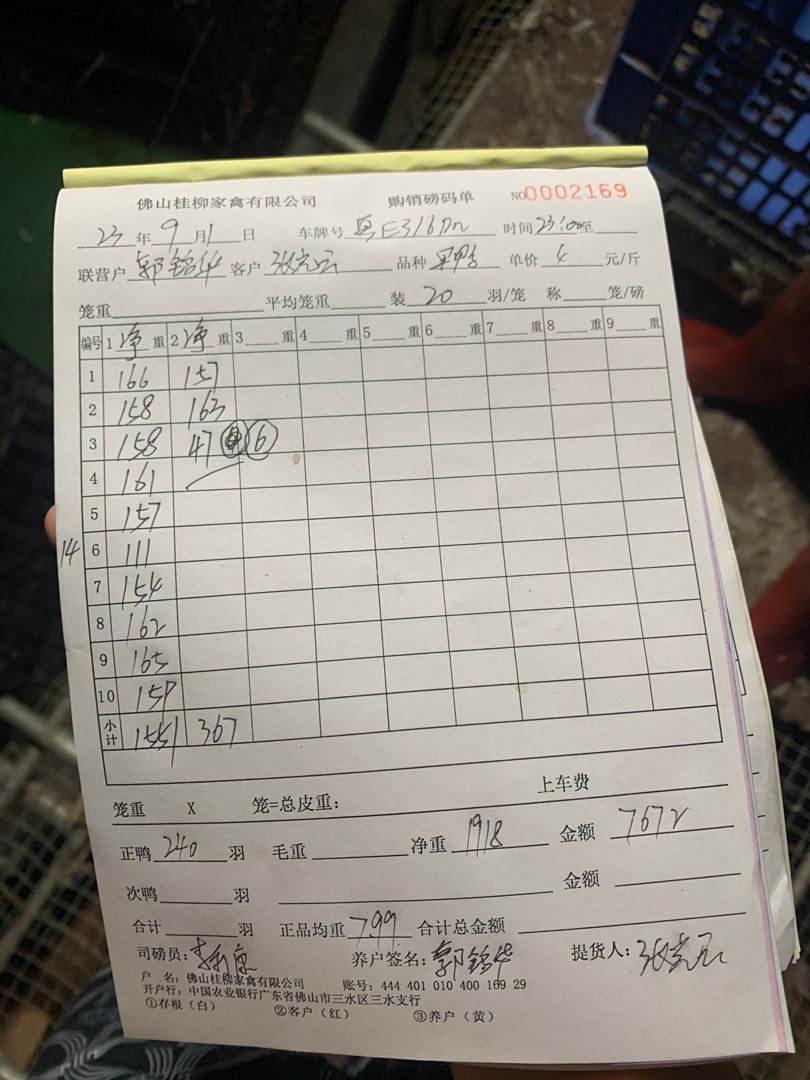 佛山桂柳家禽有限公司 购销磅码单 NO0002169
23年9月1日 车牌号粤E316 时间23:00至
联营户郭锦华 客户张 品种 单价4元/斤
笼重 平均笼重 装20羽/笼 称 笼/磅
编号 1净重 2净重 3 重 4 重 5 重 6 重 7 重 8 重 9 重
1 166 157
2 158 163
3 158 47 6
4 161
5 157
14 6 111
7 154
8 162
9 165
10 159
小计 1551 367
笼重 X 笼=总皮重: 上车费
正鸭240羽 毛重 净重1918 金额7672
次鸭 羽 金额
合计 羽 正品均重7.99 合计总金额
司磅员: 养户签名:郭锦华 提货人:张
户 名: 佛山桂柳家禽有限公司 账号: 444 401 010 400 169 29
开户行: 中国农业银行广东省佛山市三水区三水支行
①存根(白) ②客户(红) ③养户(黄)